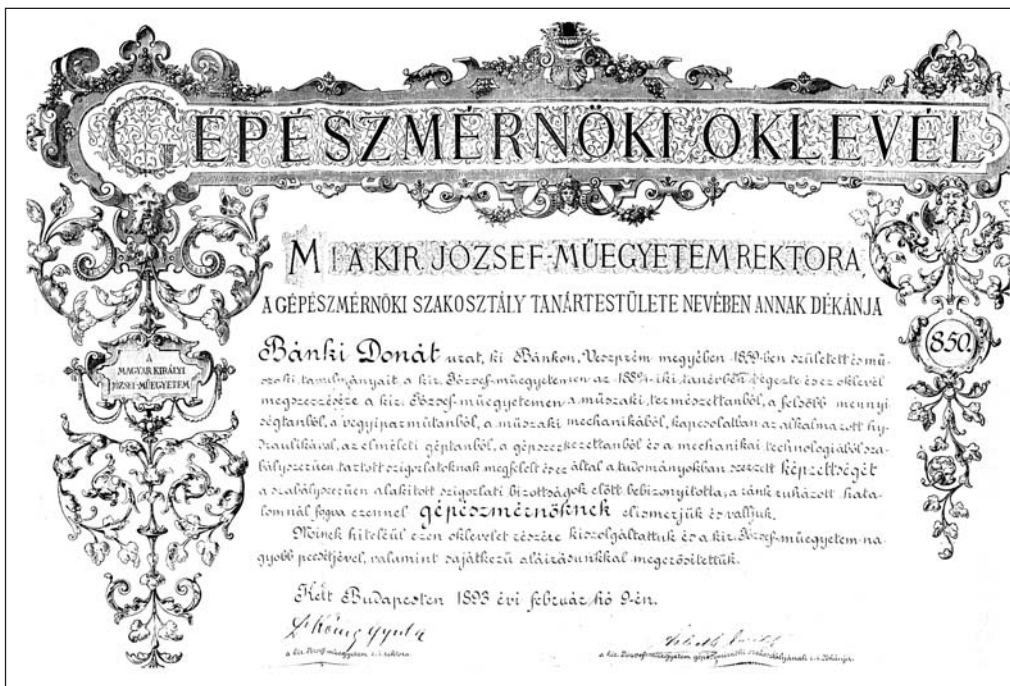 GÉPÉSZMÉRNÖKI OKLEVÉL
MI A KIR JÓZSEF-MŰEGYETEM REKTORA,
A GÉPÉSZMÉRNÖKI SZAKOSZTÁLY TANÁRTESTÜLETE NEVÉBEN ANNAK DÉKÁNJA
A
MAGYAR KIRÁLYI
JÓZSEF-MŰEGYETEM
850.
Bánki Donát urat, ki Bánkon, Veszprém megyében 1859-ben született és mű-
szaki tanulmányait a kir. József-műegyetemen az -iki tanévben végezte és ez oklevél
megszerzésére a kir. József-műegyetemen a műszaki természettanból, a felsőbb mennyi
ségtanból, a vegyiparműtanból, a műszaki mechanikából, kapcsolatban az alkalmazott hy-
draulikával, az elméleti géptanból, a gépszerkezettanból és a mechanikai technologiából sza-
bályszerűen tartott szigorlatoknak megfelelt és ez által a tudományokban szerzett képzettségét
a szabályszerűen alakított szigorlati bizottságok előtt bebizonyította, a ránk ruházott hata-
lomnál fogva ezennel gépészmérnöknek elismerjük és valljuk.
Minek hiteléül ezen oklevelet részére kiszolgáltattuk és a kir. József-műegyetem na-
gyobb pecsétjével, valamint sajátkezű aláírásunkkal megerősítettük.
Kelt Budapesten 1893 évi február hó 9-én.
König Gyula
a kir. József-műegyetem e.i. rektora.
a kir. József-műegyetem gépészmérnöki szakosztályának e.i. dékánja.